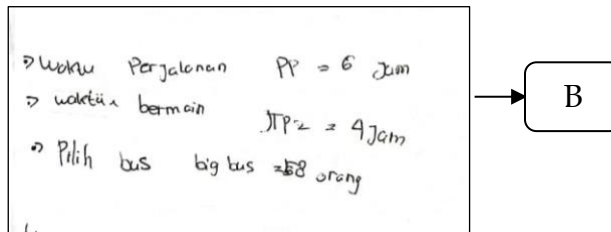 ⇒ Waktu Perjalanan PP = 6 Jam
⇒ waktu bermain JTP2 = 4 Jam
⇒ Pilih bus big bus = 58 orang
B